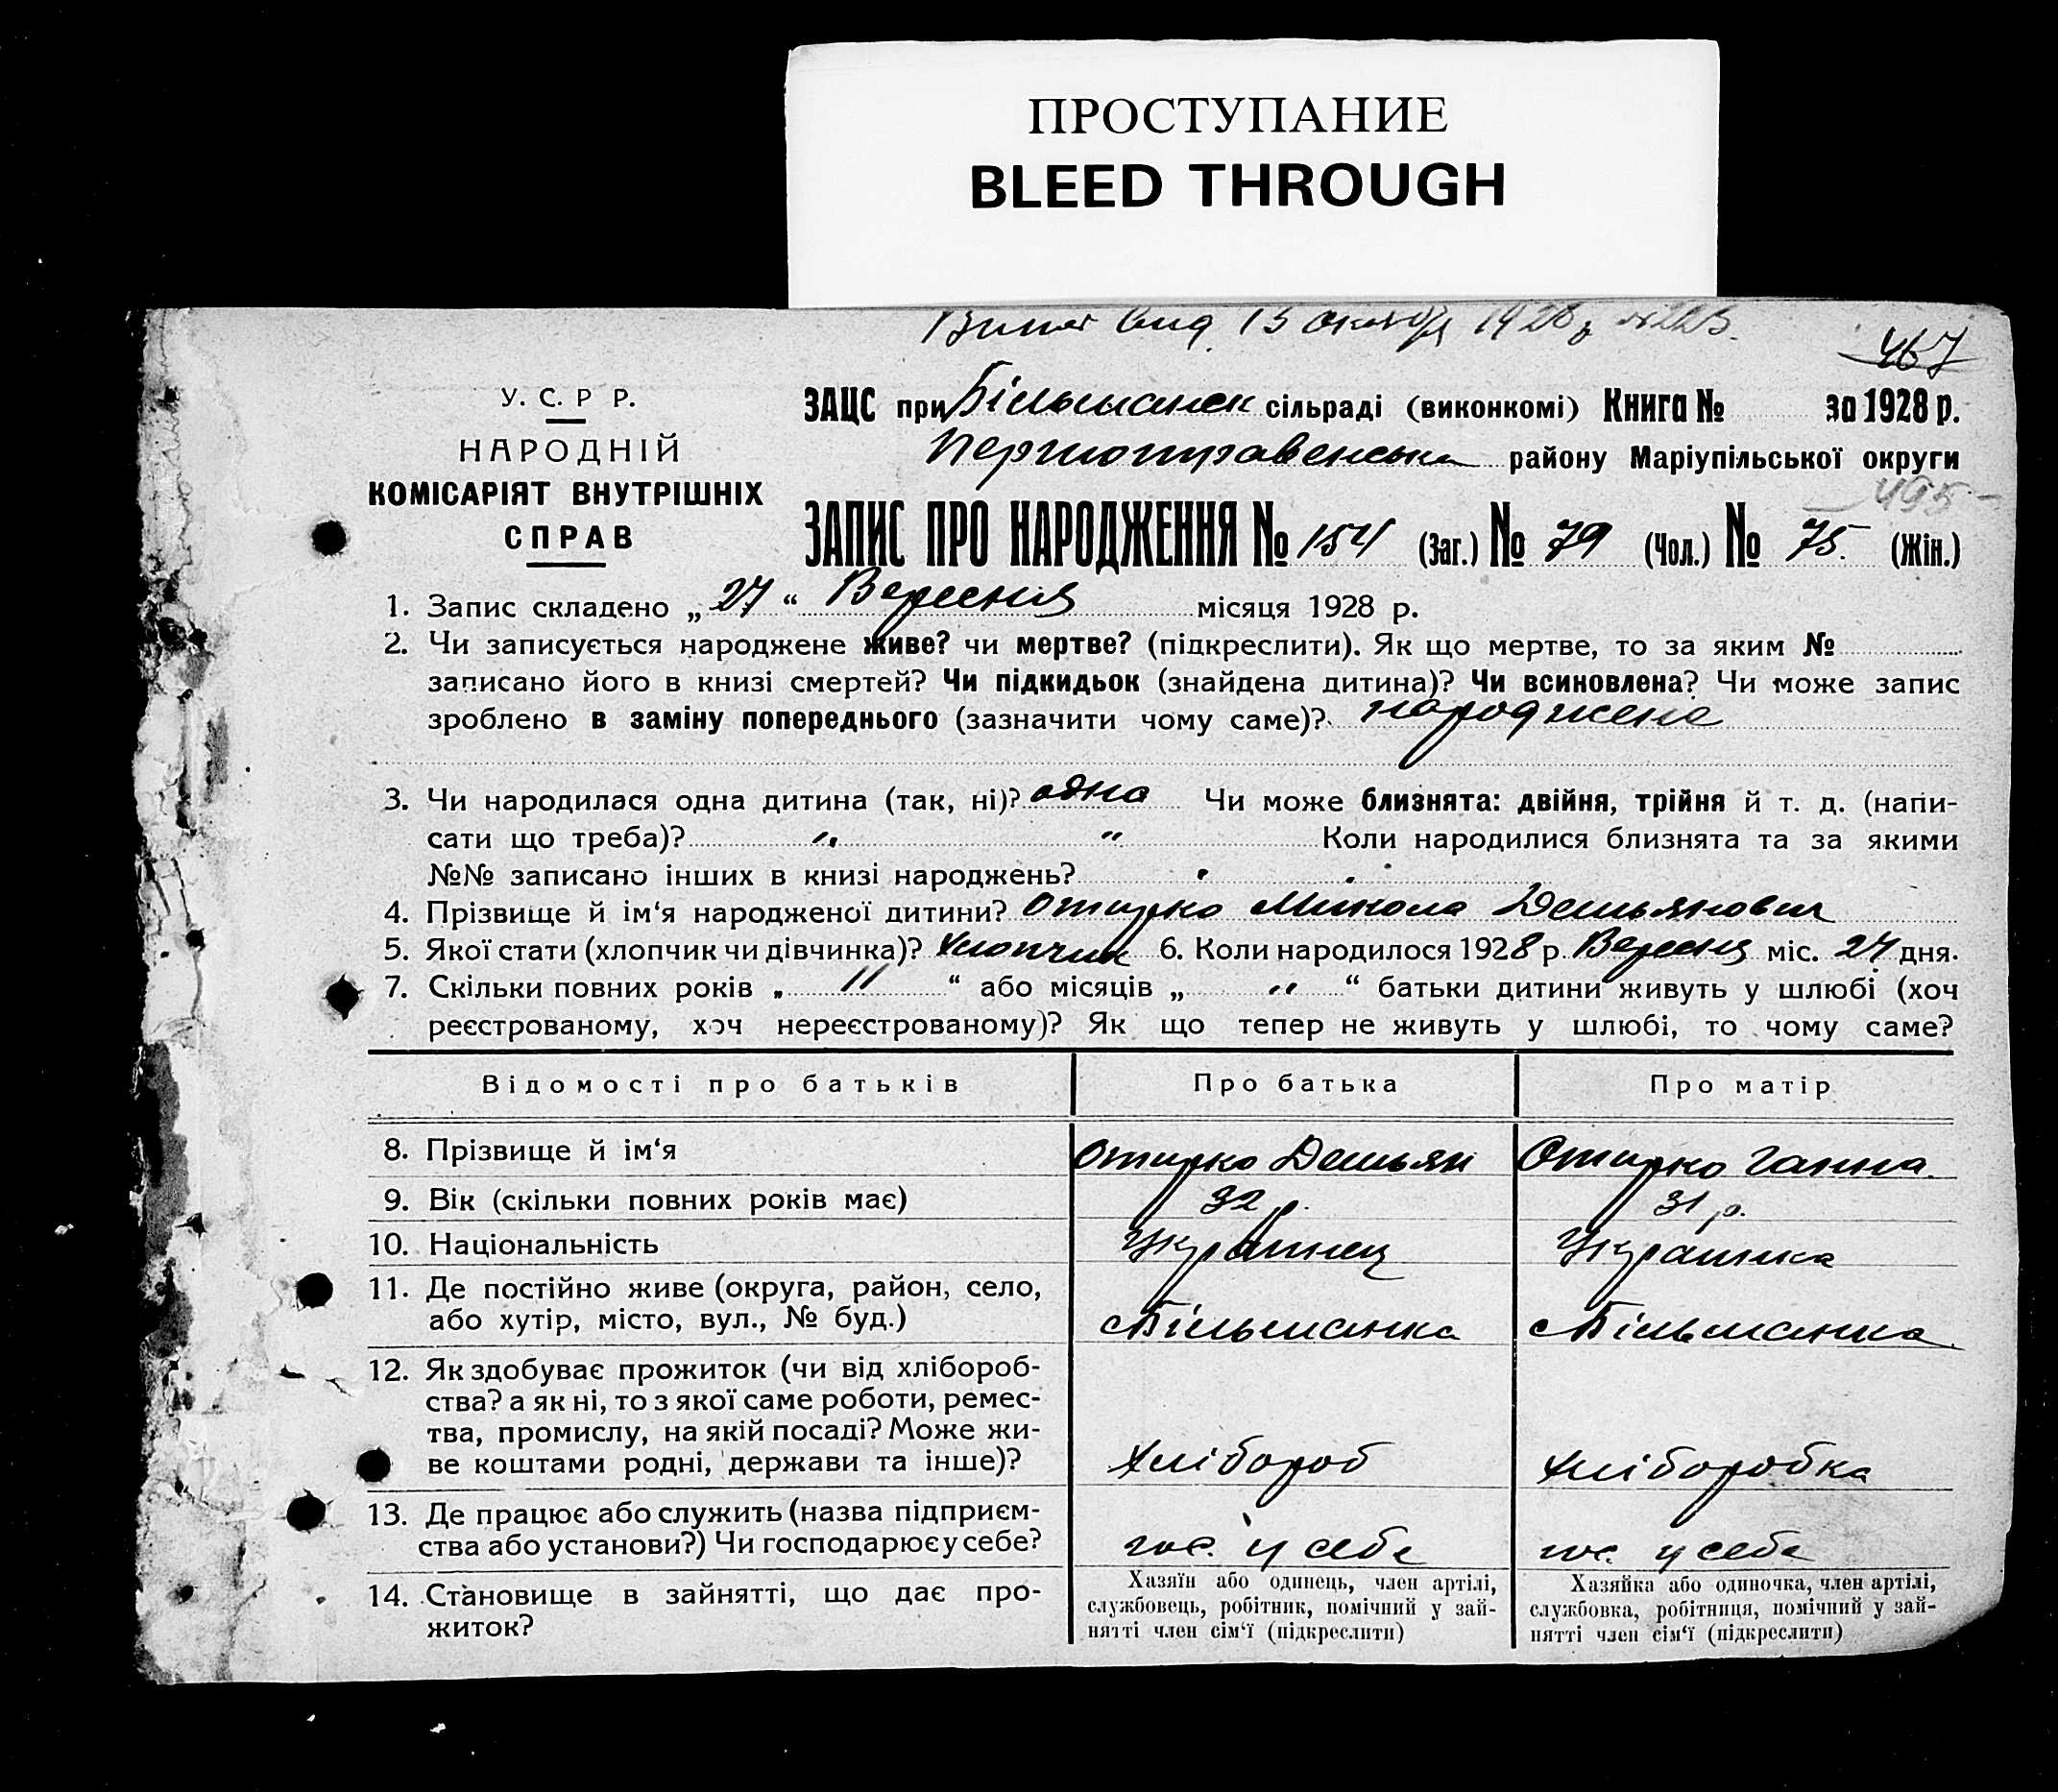 ПРОСТУПАНИЕ
BLEED THROUGH
вид. 13 октября 1928 г.
467
У. С. Р Р.
НАРОДНІЙ
КОМІСАРІЯТ ВНУТРІШНІХ
СПРАВ
ЗАЦС при Більманск сільраді (виконкомі) Книга № за 1928 р.
Першотравенська району Маріупільської округи
495
ЗАПИС ПРО НАРОДЖЕННЯ № 154 (Заг.) № 79 (Чол.) № 75. (Жін.)
1. Запис складено „ 27 “ Вересня місяця 1928 р.
2. Чи записується народжене живе? чи мертве? (підкреслити). Як що мертве, то за яким №
записано його в книзі смертей? Чи підкидьок (знайдена дитина)? Чи всиновлена? Чи може запис
зроблено в заміну попереднього (зазначити чому саме)? народжене
3. Чи народилася одна дитина (так, ні)? одна Чи може близнята: двійня, трійня й т. д. (напи-
сати що треба)? „ „ Коли народилися близнята та за якими
№№ записано інших в книзі народжень?
4. Прізвище й ім‘я народженої дитини? Отирко Микола Демьянович
5. Якої стати (хлопчик чи дівчинка)? Хлопчик 6. Коли народилося 1928 р. Вересня міс. 24 дня.
7. Скільки повних років „ 11 “ або місяців „ „ “ батьки дитини живуть у шлюбі (хоч
реєстрованому, хоч нереєстрованому)? Як що тепер не живуть у шлюбі, то чому саме?
Відомості про батьків Про батька Про матір
8. Прізвище й ім‘я Отирко Демьян Отирко Ганна.
9. Вік (скільки повних років має) 32 р. 31 р.
10. Національність Украинец Украинка
11. Де постійно живе (округа, район, село,
або хутір, місто, вул., № буд.) с Більманка с Більманка
12. Як здобуває прожиток (чи від хлібороб-
ства? а як ні, то з якої саме роботи, ремес-
тва, промислу, на якій посаді? Може жи-
ве коштами родні, держави та інше)? Хлібороб Хліборобка
13. Де працює або служить (назва підприєм-
ства або установи?) Чи господарює у себе? гос. у себе гос. у себе
14. Становище в зайнятті, що дає про-
житок?
Хазяїн або одинець, член артілі,
службовець, робітник, помічний у зай-
нятті член сім‘ї (підкреслити)
Хазяйка або одиночка, член артілі,
службовка, робітниця, помічний у зай-
нятті член сім‘ї (підкреслити)